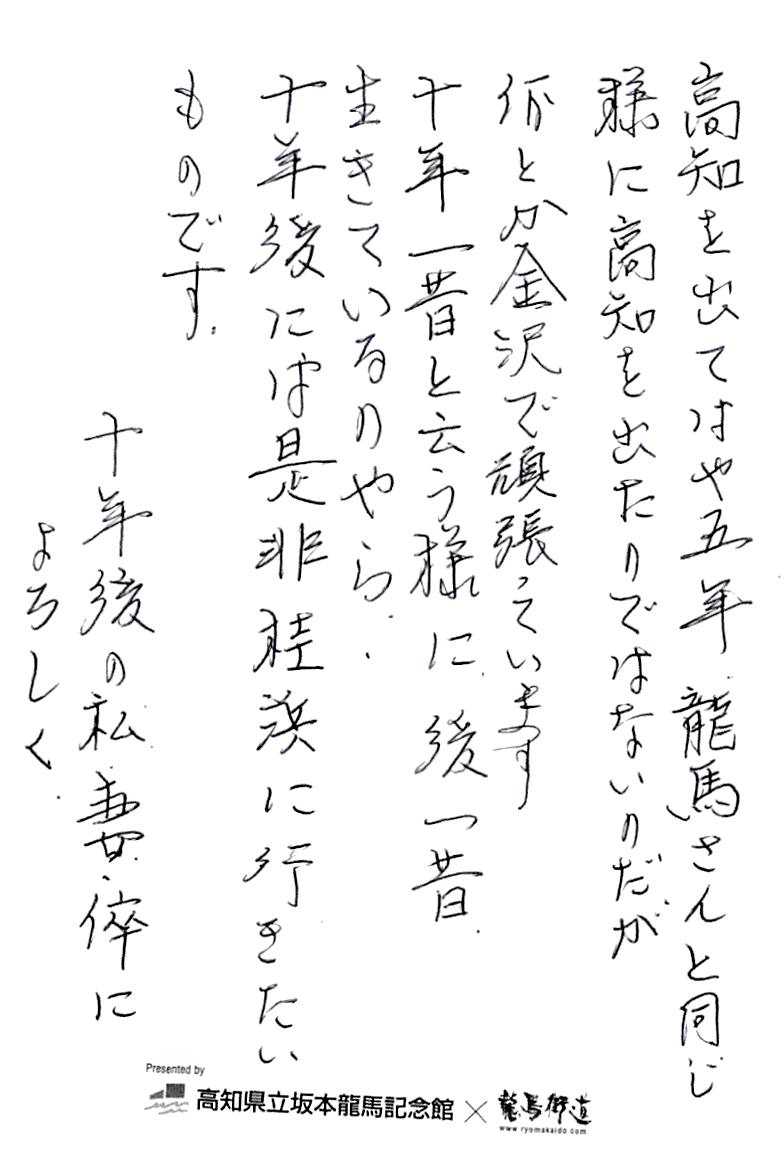 高知を出てはや五年 龍馬さんと同じ
様に高知を出たのではないのだが
何とか金沢で頑張っています
十年一昔と云う様に 後一昔
生きているのやら.
十年後には是非桂浜に行きたい
ものです.
十年後の私.妻.倅に
よろしく.
Presented by
高知県立坂本龍馬記念館×龍馬街道
www.ryomakaido.com